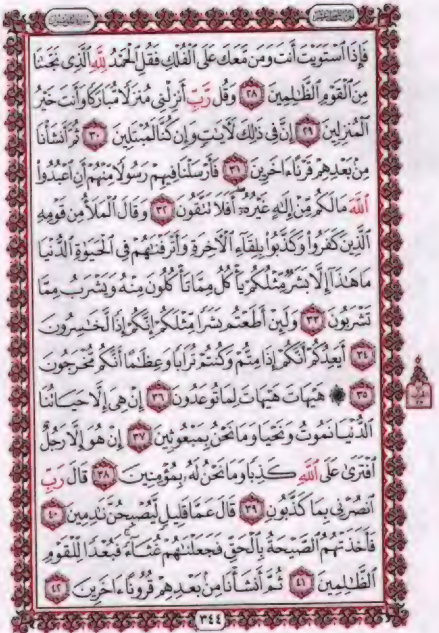 فَإِذَا ٱسْتَوَيْتَ أَنتَ وَمَن مَّعَكَ عَلَى ٱلْفُلْكِ فَقُلِ ٱلْحَمْدُ لِلَّهِ ٱلَّذِى نَجَّىٰنَا
مِنَ ٱلْقَوْمِ ٱلظَّٰلِمِينَ ٢٨ وَقُل رَّبِّ أَنزِلْنِى مُنزَلًا مُّبَارَكًا وَأَنتَ خَيْرُ
ٱلْمُنزِلِينَ ٢٩ إِنَّ فِى ذَٰلِكَ لَءَايَٰتٍ وَإِن كُنَّا لَمُبْتَلِينَ ٣٠ ثُمَّ أَنشَأْنَا
مِنۢ بَعْدِهِمْ قَرْنًا ءَاخَرِينَ ٣١ فَأَرْسَلْنَا فِيهِمْ رَسُولًا مِّنْهُمْ أَنِ ٱعْبُدُوا۟
ٱللَّهَ مَا لَكُم مِّنْ إِلَٰهٍ غَيْرُهُۥٓ أَفَلَا تَتَّقُونَ ٣٢ وَقَالَ ٱلْمَلَأُ مِن قَوْمِهِ
ٱلَّذِينَ كَفَرُوا۟ وَكَذَّبُوا۟ بِلِقَآءِ ٱلْءَاخِرَةِ وَأَتْرَفْنَٰهُمْ فِى ٱلْحَيَوٰةِ ٱلدُّنْيَا
مَا هَٰذَآ إِلَّا بَشَرٌ مِّثْلُكُمْ يَأْكُلُ مِمَّا تَأْكُلُونَ مِنْهُ وَيَشْرَبُ مِمَّا
تَشْرَبُونَ ٣٣ وَلَئِنْ أَطَعْتُم بَشَرًا مِّثْلَكُمْ إِنَّكُمْ إِذًا لَّخَٰسِرُونَ
٣٤ أَيَعِدُكُمْ أَنَّكُمْ إِذَا مِتُّمْ وَكُنتُمْ تُرَابًا وَعِظَٰمًا أَنَّكُم مُّخْرَجُونَ
٣٥ ۞ هَيْهَاتَ هَيْهَاتَ لِمَا تُوعَدُونَ ٣٦ إِنْ هِىَ إِلَّا حَيَاتُنَا
ٱلدُّنْيَا نَمُوتُ وَنَحْيَا وَمَا نَحْنُ بِمَبْعُوثِينَ ٣٧ إِنْ هُوَ إِلَّا رَجُلٌ
ٱفْتَرَىٰ عَلَى ٱللَّهِ كَذِبًا وَمَا نَحْنُ لَهُۥ بِمُؤْمِنِينَ ٣٨ قَالَ رَبِّ
ٱنصُرْنِى بِمَا كَذَّبُونِ ٣٩ قَالَ عَمَّا قَلِيلٍ لَّيُصْبِحُنَّ نَٰدِمِينَ ٤٠
فَأَخَذَتْهُمُ ٱلصَّيْحَةُ بِٱلْحَقِّ فَجَعَلْنَٰهُمْ غُثَآءً فَبُعْدًا لِّلْقَوْمِ
ٱلظَّٰلِمِينَ ٤١ ثُمَّ أَنشَأْنَا مِنۢ بَعْدِهِمْ قُرُونًا ءَاخَرِينَ ٤٢
٣٤٤